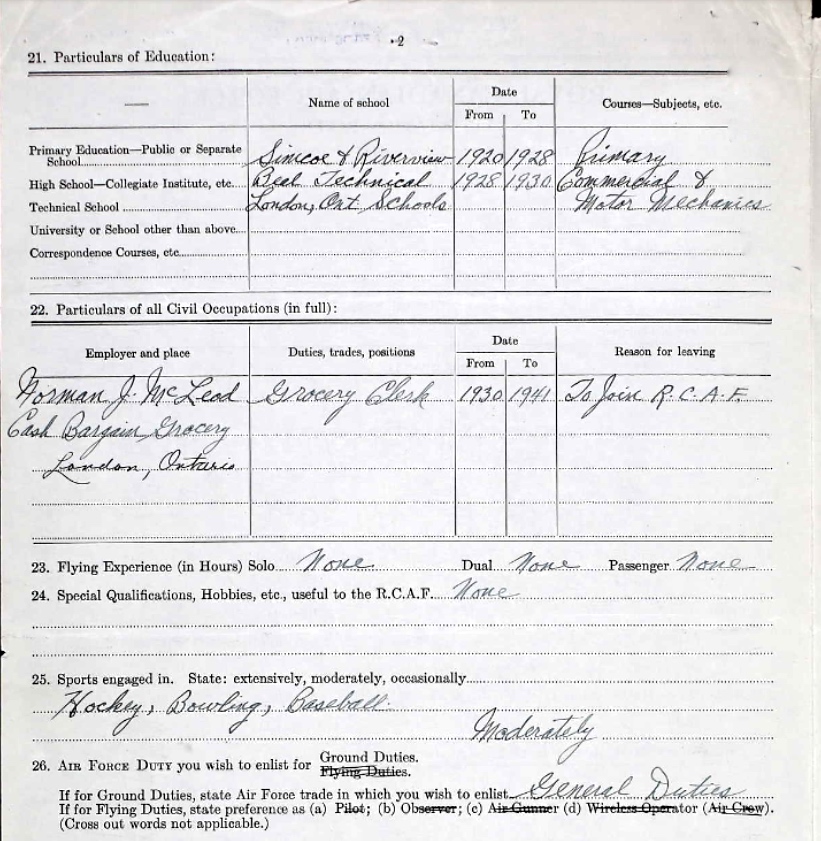 2
21. Particulars of Education:
— Name of school Date Courses—Subjects, etc.
From To
Primary Education—Public or Separate
School Simcoe & Riverview 1920 1928 Primary
High School—Collegiate Institute, etc. Beal Technical 1928 1930 Commercial &
Technical School London, Ont Schools Motor Mechanics
University or School other than above
Correspondence Courses, etc.
22. Particulars of all Civil Occupations (in full):
Employer and place Duties, trades, positions Date Reason for leaving
From To
Norman J. McLeod Grocery Clerk 1930 1941 To Join R.C.A.F.
Cash Bargain Grocery
London, Ontario
23. Flying Experience (in Hours) Solo None Dual None Passenger None
24. Special Qualifications, Hobbies, etc., useful to the R.C.A.F. None
25. Sports engaged in. State: extensively, moderately, occasionally
Hockey, Bowling, Baseball.
Moderately
26. AIR FORCE DUTY you wish to enlist for Ground Duties.
Flying Duties.
If for Ground Duties, state Air Force trade in which you wish to enlist General Duties
If for Flying Duties, state preference as (a) Pilot; (b) Observer; (c) Air Gunner (d) Wireless Operator (Air Crew).
(Cross out words not applicable.)